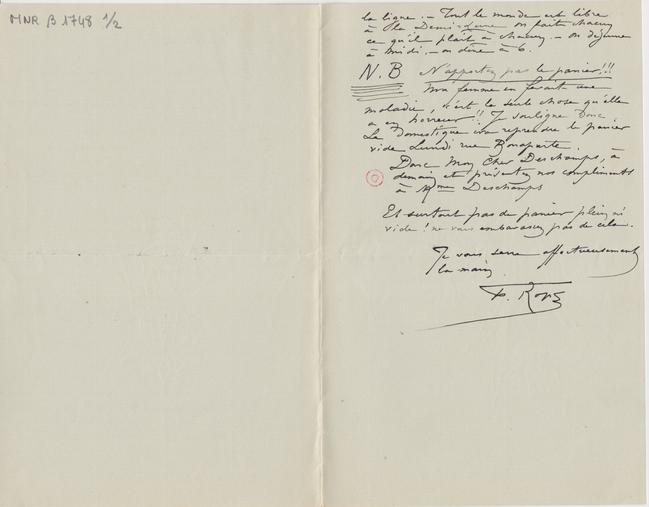 MNR β 1748 1/2
la ligne. – Tout le monde est libre
à la Demi-Lune on fait chacun
ce qu'il plaît à chacun – on déjeune
à midi. – on dîne à 6.
N.B N'apportez pas le panier!!!
Ma femme en ferait une
maladie, c'est la seule chose qu'elle
a en horreur!! Je souligne donc.
La Domestique ira reprendre le panier
vide Lundi rue Bonaparte.
Donc Mon Cher Deschamps, à
demain et présentez nos compliments
à Mme Deschamps
Et surtout pas de panier plein ni
vide! ne vous embarassez pas de cela.
Je vous serre affectueusement
la main
F. Rops